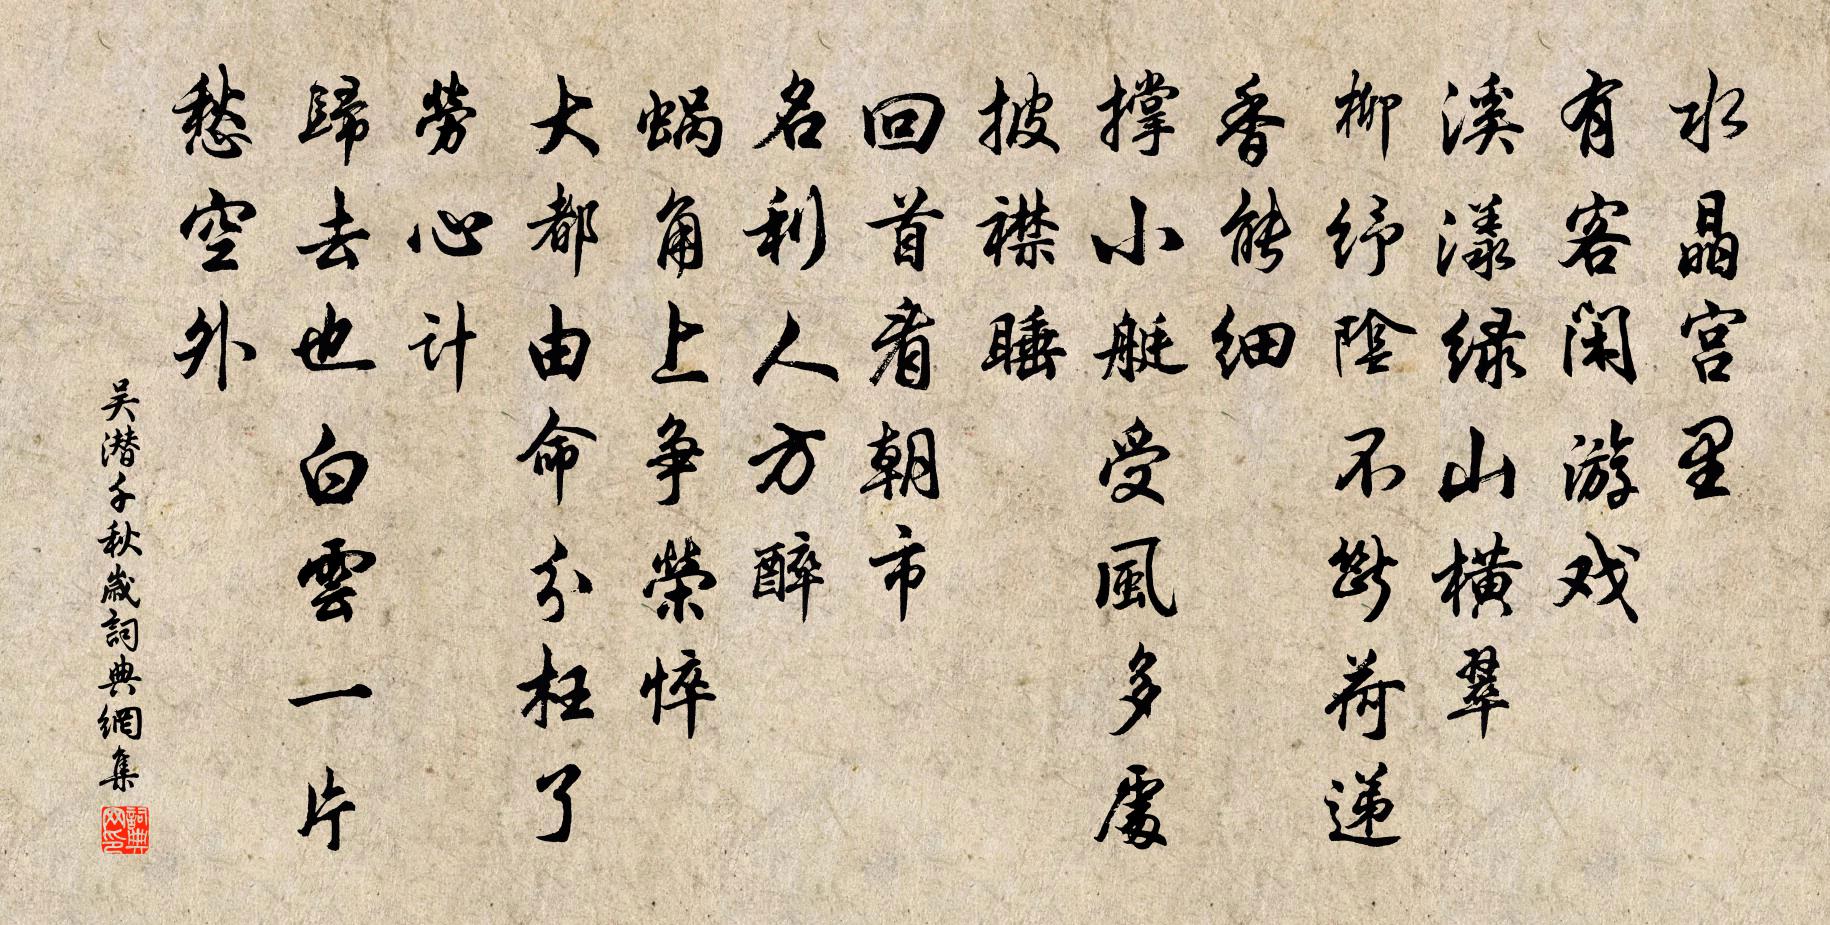 水晶宫里
有客闲游戏
溪漾绿山横翠
柳纾陰不斷荷递
香能细
撑小艇受風多處
披襟睡
回首看朝市
名利人方醉
蜗角上争榮悴
大都由命分枉了
勞心计
歸去也白雲一片
愁空外
吴潜千秋歲詞典網集
詞典网印